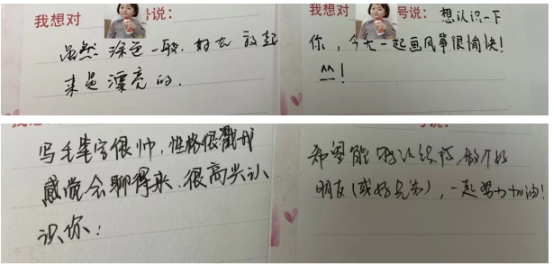 我想对 号说：
虽然涂色一般，好在放起
来是漂亮的.
我想对 号说： 想认识一下
你，今天一起画风筝很愉快！
^^！
写毛笔字很帅，性格很戳我
感觉会聊得来，很高兴认
识你！
号说：
希望能 认识 ，做个好
朋友（或好兄弟），一起努力加油！